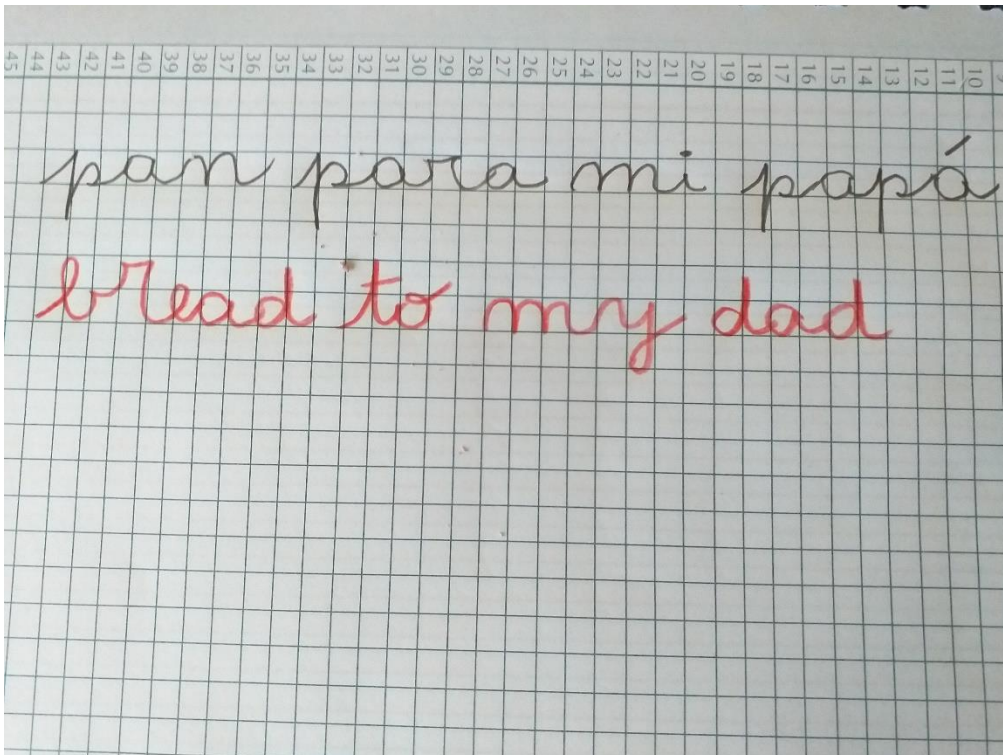 45 44 43 42 41 40 39 38 37 36 35 34 33 32 31 30 29 28 27 26 25 24 23 22 21 20 19 18 17 16 15 14 13 12 11 10
pan para mi papá
bread to my dad